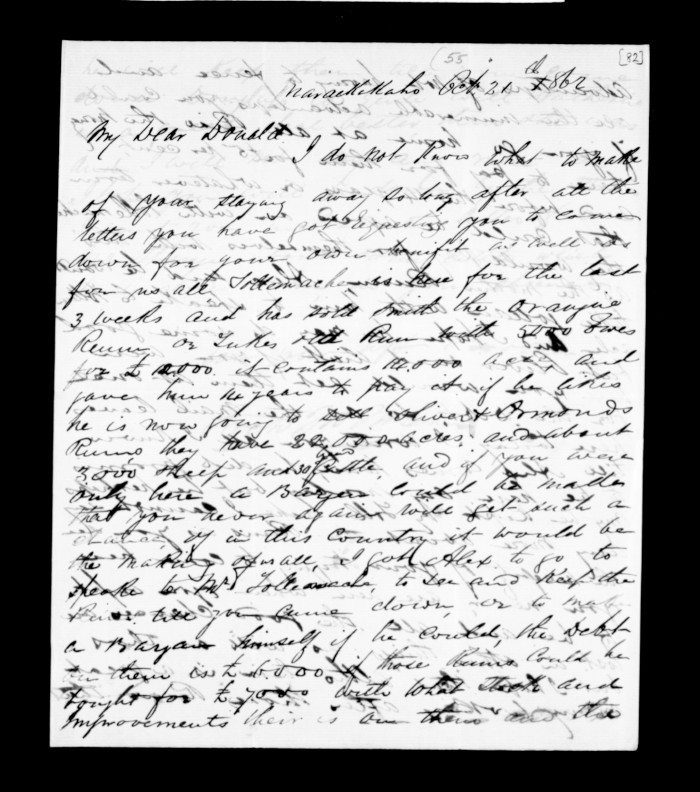 (55
[82]
Oct 21st 1862
My Dear Donald
I do not know what to make
of your staying away so long after all the
letters you have got requesting you to come
down for your own benifit as well as
for us all Tollemache is here for the last
3 weeks and has sold Smith the
Runn or Lukes old Runn with 5000 Ewes
for £ 12000 it contains 12000 acres, and
gave him 14 years to pay it if he likes
he is now going to sell Oliver & Ormonds
Runns they have 22,000 acres and about
3000 Sheep and Cattle, and if you were
only here a Bargan could be made
that you never again will get such a
chance, of in this Country it would be
the making of us all, I got Alex to go to
speake to Mr Tollemache, to see and keep the
Runs till you came down, or to make
a Bargan himself if he could, the Debt
on them is £ 6000, if those Runns could be
bought for £ 7000 with what stock and
improvements their is on them and the